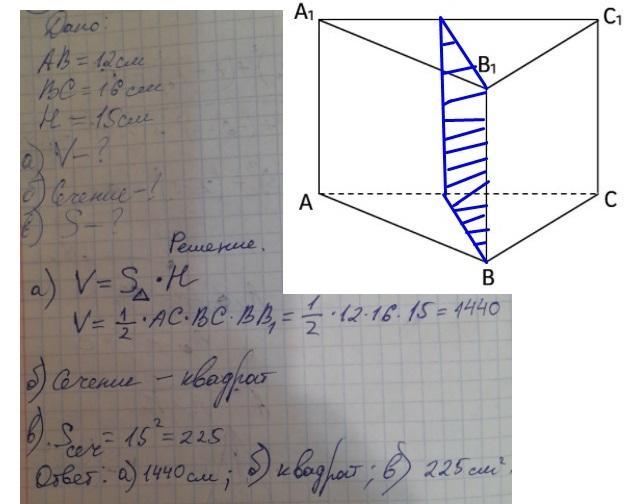 Дано:
AB = 12см
BC = 16см
H = 15см
а) V – ?
б) Сечение – ?
в) S – ?
Решение.
а) V = S△ · H
V = 1/2 · AC · BC · BB₁ = 1/2 · 12 · 16 · 15 = 1440
б) Сечение – квадрат
в). Sсеч = 15² = 225
Ответ: а) 1440 см; б) квадрат; в) 225 см².
A₁
C₁
B₁
A
C
B